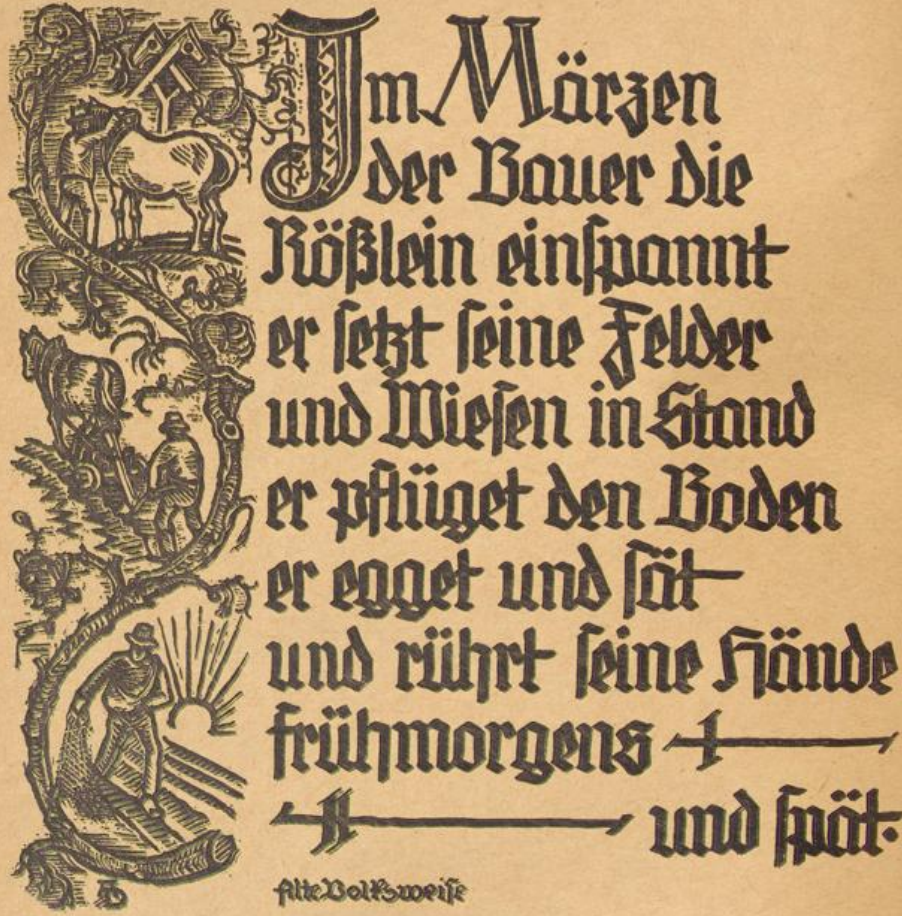 Im Märzen
der Bauer die
Rößlein einspannt
er setzt seine Felder
und Wiesen in Stand
er pflüget den Boden
er egget und sät
und rührt seine Hände
frühmorgens
und spät.
Alte Volksweise